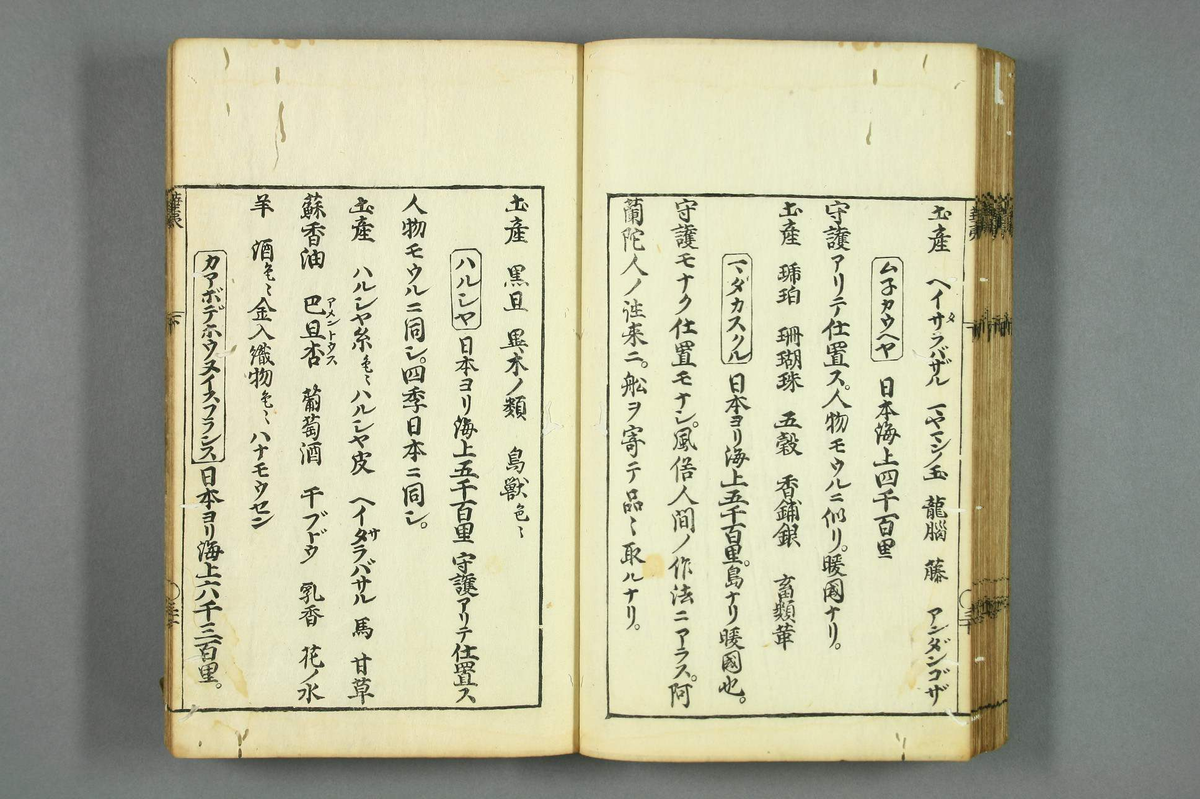 土産 ヘイサラバザル 一ヤマシノ玉 龍腦 藤 アンダンゴザ
タ
ムスカウベヤ 日本海上四千百里
守護アリテ仕置ス。人物モウルニ似リ。暖國ナリ。
土産 琥珀 珊瑚珠 五穀 香鋪銀 畜類革
マダカスクル 日本ヨリ海上五千百里。島ナリ暖國也。
守護モナク仕置モナシ。風俗人間ノ作法ニアラス。阿
蘭陀人ノ往来ニ。舩ヲ寄テ品〻取ルナリ。
土産 黒旦 異木ノ類 鳥獣色〻
ハルシヤ 日本ヨリ海上五千百里 守護アリテ仕置ス
人物モウルニ同シ。四季日本ニ同シ。
土産 ハルシヤ糸色〻ハルシヤ皮 ヘイタラバサル 馬 甘草
サ
蘇香油 巴旦杏 葡萄酒 干ブドウ 乳香 花ノ水
アメントウス
羊 酒色〻金入織物色〻ハナモウセン
カアボデホウヌイスフランス 日本ヨリ海上六千三百里。